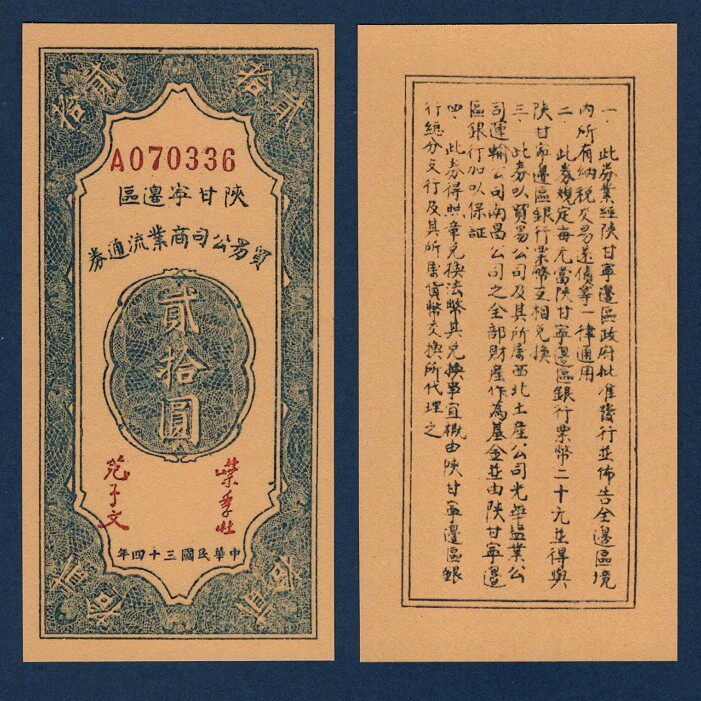 貳拾
貳拾
A070336
陝甘宁邊區
貿易公司商業流通券
貳拾圓
葉季壯
范子文
中華民國三十四年
貳拾
貳拾
一. 此券業經陝甘寧邊區政府批准發行並佈告全邊區境
內所有納稅交易還債等一律通用
二. 此券規定每元當陝甘寧邊區銀行票幣二十元並得與
陝甘寧邊區銀行票幣互相兌換
三. 此券以貿易公司及其所屬西北土產公司光華鹽業公
司運輸公司南昌公司之全部財產作為基金並由陝甘寧邊
區銀行加以保証
四. 此券得照章兌換法幣其兌換事宜概由陝甘寧邊區銀
行總分支行及其所屬貨幣交換所代理之